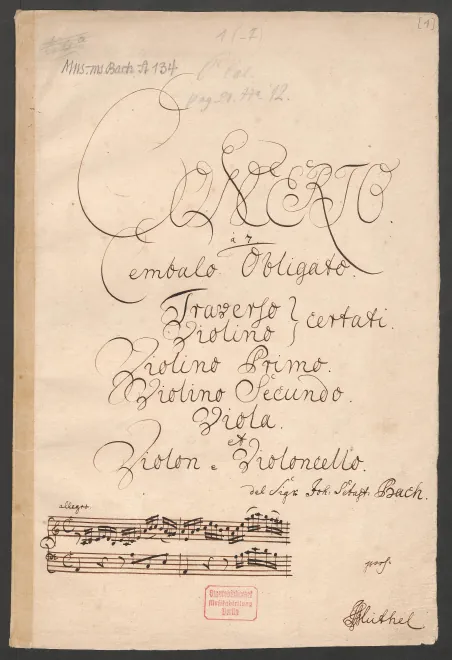 [1]
Mus. ms. Bach St 134
CONCERTO.
à 7
Cembalo Obligato.
Traverso
Violino
certati.
Violino Primo.
Violino Secundo.
Viola.
et
Violon e Violoncello.
del Sigr. Joh. Sebast. Bach.
allegro.
poss.
Müthel